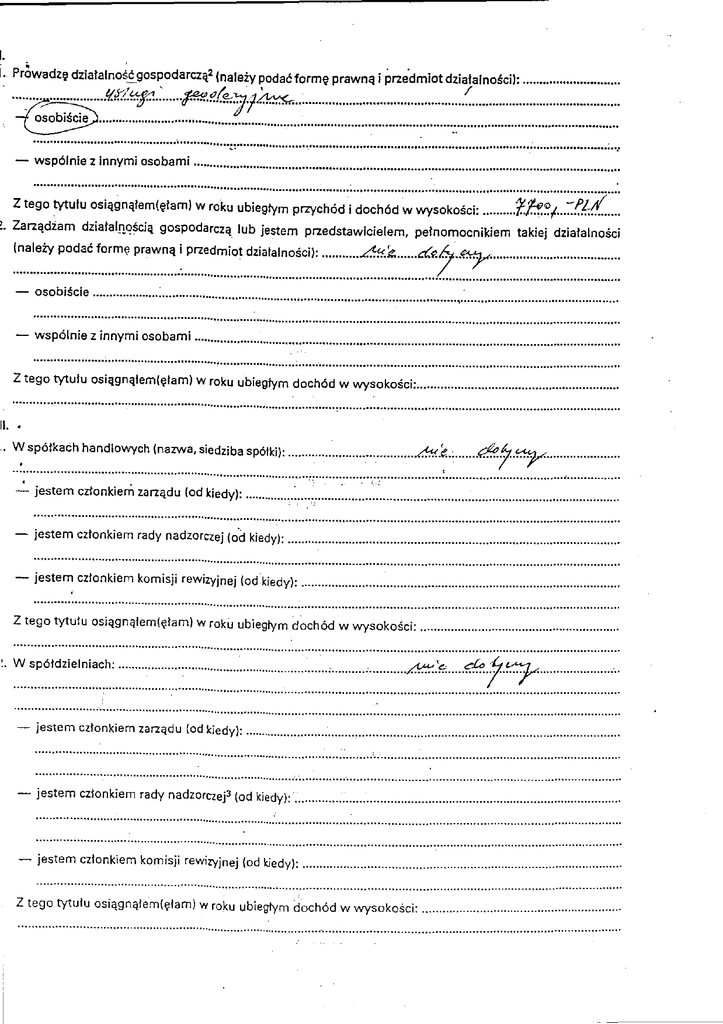 I.
1. Prowadzę działalność gospodarczą² (należy podać formę prawną i przedmiot działalności): 
usługi geodezyjne
— osobiście
— wspólnie z innymi osobami
Z tego tytułu osiągnąłem(ęłam) w roku ubiegłym przychód i dochód w wysokości: 7700,-PLN
2. Zarządzam działalnością gospodarczą lub jestem przedstawicielem, pełnomocnikiem takiej działalności
(należy podać formę prawną i przedmiot działalności): nie dotyczy
— osobiście
— wspólnie z innymi osobami
Z tego tytułu osiągnąłem(ęłam) w roku ubiegłym dochód w wysokości:
II.
. W spółkach handlowych (nazwa, siedziba spółki): nie dotyczy
— jestem członkiem zarządu (od kiedy):
— jestem członkiem rady nadzorczej (od kiedy):
— jestem członkiem komisji rewizyjnej (od kiedy):
Z tego tytułu osiągnąłem(ęłam) w roku ubiegłym dochód w wysokości:
. W spółdzielniach: nie dotyczy
— jestem członkiem zarządu (od kiedy):
— jestem członkiem rady nadzorczej³ (od kiedy):
— jestem członkiem komisji rewizyjnej (od kiedy):
Z tego tytułu osiągnąłem(ęłam) w roku ubiegłym dochód w wysokości: